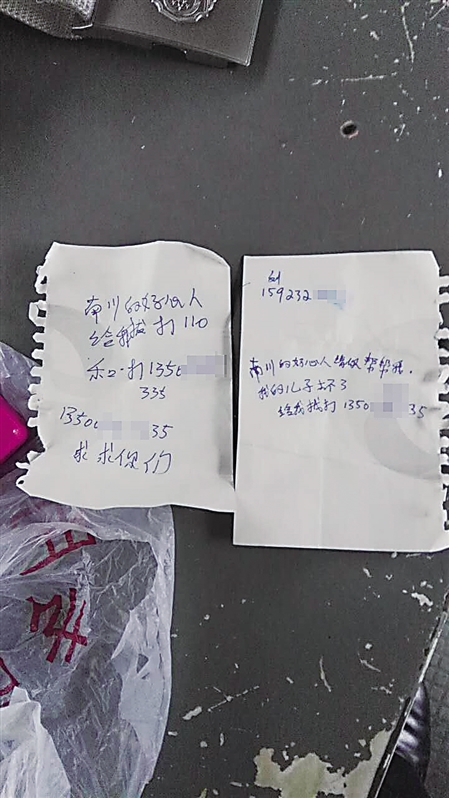 南川的好心人
给我拔打110
打1350
335
1350 35
求求你们
159232
南川的好心人 帮帮我.
我的儿子坏了
给我拔打1350 35